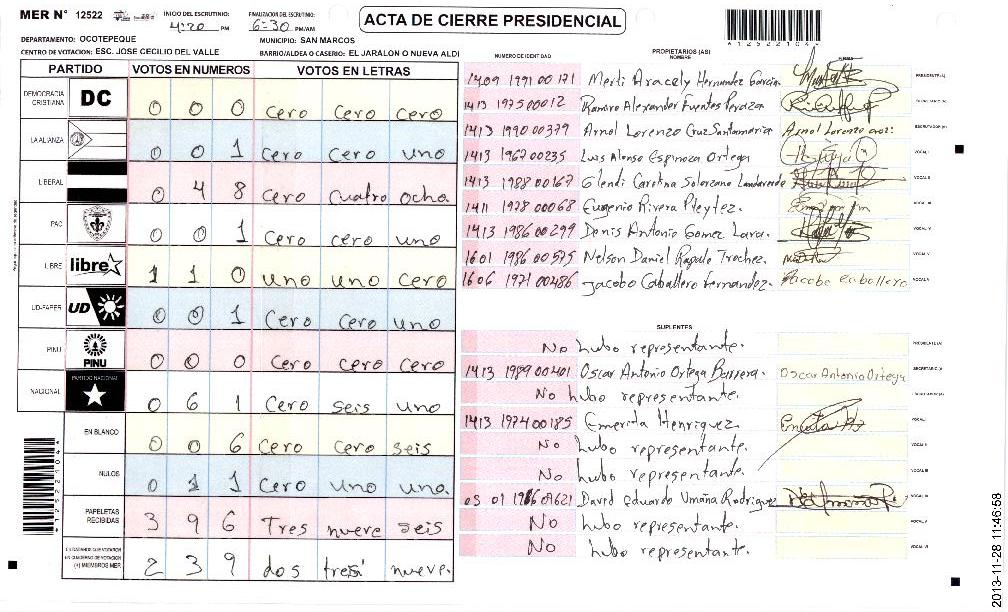 MER N° 12522 INICIO DEL ESCRUTINIO: 4:20 PM FINALIZACION DEL ESCRUTINIO: 6:30 PM/AM
ACTA DE CIERRE PRESIDENCIAL
*12522104*
DEPARTAMENTO: OCOTEPEQUE MUNICIPIO: SAN MARCOS
CENTRO DE VOTACION: ESC. JOSE CECILIO DEL VALLE BARRIO/ALDEA O CASERIO: EL JARALON O NUEVA ALDI
PARTIDO VOTOS EN NUMEROS VOTOS EN LETRAS
DEMOCRACIA CRISTIANA DC 0 0 0 Cero Cero Cero
LA ALIANZA 0 0 1 Cero Cero uno
LIBERAL 0 4 8 Cero Cuatro ocho
PAC 0 0 1 Cero cero uno
LIBRE libre 1 1 0 uno uno cero
UD-FAPER UD 0 0 1 Cero Cero uno
PINU PINU 0 0 0 Cero Cero Cero
NACIONAL PARTIDO NACIONAL 0 6 1 Cero seis uno
EN BLANCO 0 0 6 Cero Cero seis
NULOS 0 1 1 Cero uno uno.
PAPELETAS RECIBIDAS 3 9 6 Tres nueve seis
(+) MIEMBROS MER 2 3 9 dos tres nueve.
NUMERO DE IDENTIDAD PROPIETARIOS (AS) NOMBRE FIRMA
1409 1991 00171 Merli Aracely Hernandez Garcia PRESIDENTE(A)
1413 1975 00012 Ramiro Alexander Fuentes Peraza SECRETARIO(A)
1413 1990 00379 Arnol Lorenzo Cruz Santamaria Arnol Lorenzo ESCRUTADOR(A)
1413 1967 00235 Luis Alonso Espinoza Ortega VOCAL I
1413 1988 00167 Glendi Carolina Solorzano Landaverde VOCAL II
1411 1978 00068 Eugenio Rivera Pleytez. VOCAL III
1413 1986 00299 Denis Antonio Gomez Lara. VOCAL IV
1601 1986 00575 Nelson Daniel Trochez. VOCAL V
1606 1971 00486 Jacobo Caballero Fernandez. Jacobo Caballero VOCAL VI
SUPLENTES
No hubo representante. PRESIDENTE(A)
1413 1989 00401 Oscar Antonio Ortega Barrera. Oscar Antonio Ortega SECRETARIO(A)
No hubo representante. ESCRUTADOR(A)
1413 1974 00185 Emerita Henriquez VOCAL I
No hubo representante. VOCAL II
No hubo representante. VOCAL III
David Eduardo Umaña Rodriguez VOCAL IV
No hubo representante. VOCAL V
No hubo representante. VOCAL VI
*12522104*
2013-11-28 11:46:58